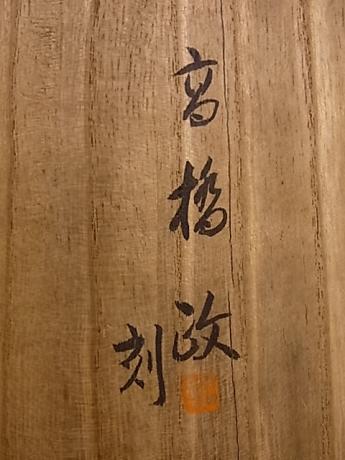 高橋政
刻